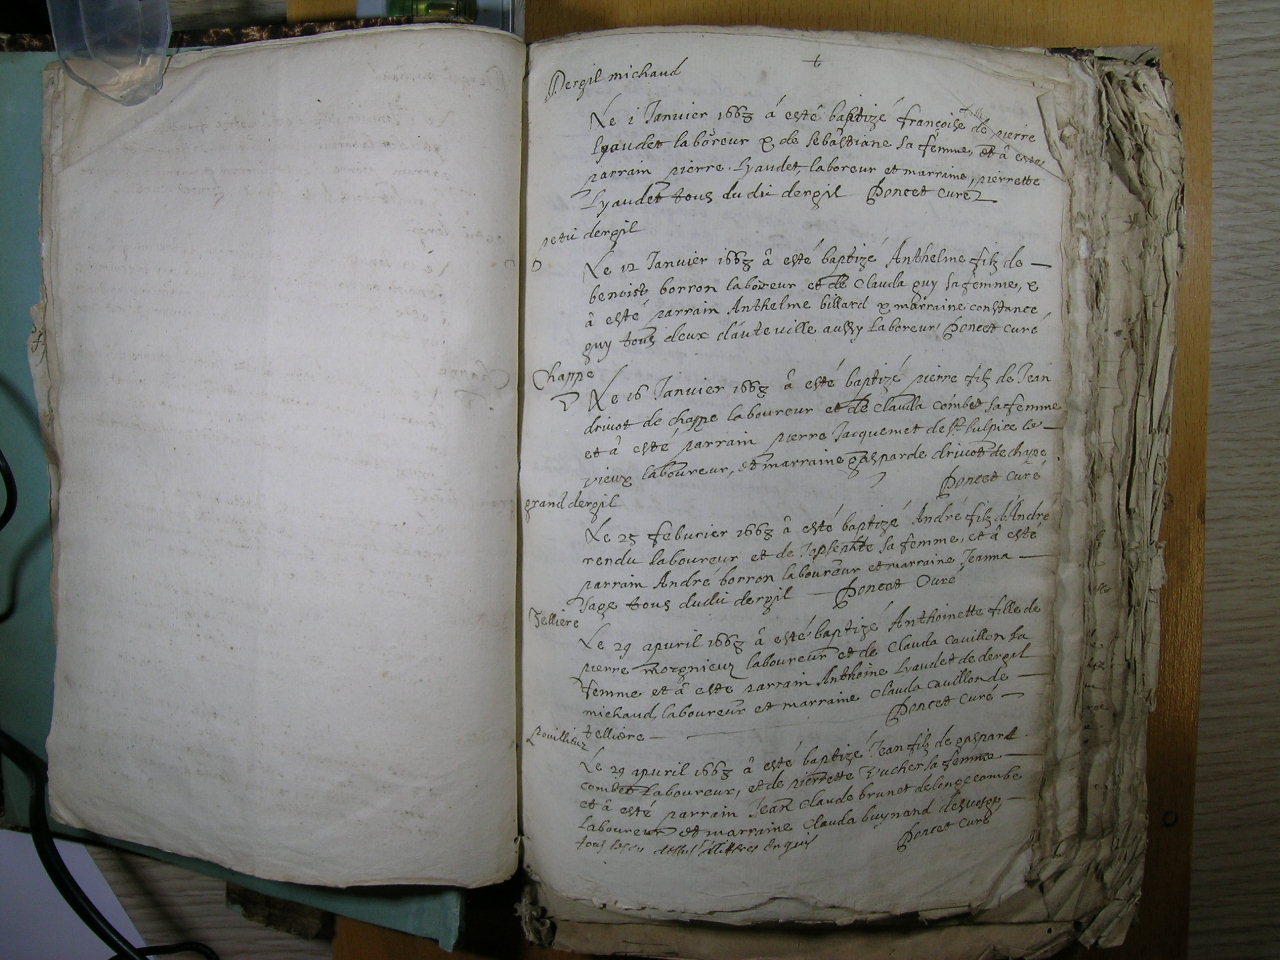 Dergil michaud
Le 1 Janvier 1663 â esté baptizé françoise fille de pierre
Lyaudet laboreur & de sebastiane sa femme, et â esté
parrain pierre Lyaudet, laboreur et marraine, pierrette
Lyaudet tous du dit dergil Poncet curé
petit dergil
Le 12 Janvier 1663 â esté baptizé Anthelme filz de
benoist borron laboreur et de Clauda guy sa femme, &
â esté parrain Anthelme billard & marraine constance
guy tous deux d'auteville aussy laboreur Poncet curé
Chappe
Le 16 Janvier 1663 â esté baptizé pierre filz de Jean
drivot de chappe laboureur et de Clauda combet sa femme
et â esté parrain pierre Jacquemet de st sulpice le
vieux laboureur, et marraine gasparde drivot de chape
Poncet curé
grand dergil
Le 25 febvrier 1663 â esté baptizé André filz d'André
rendu laboureur et de Josephte sa femme, et â esté
parrain André borron laboureur et marraine Jeanna
sage tous dudit dergil Poncet Curé
Tellière
Le 29 apvril 1663 â esté baptizé Anthoinette fille de
pierre morgnieux laboureur et de Clauda Cavillon sa
femme et â esté parrain Anthoine Lyaudet de dergil
michaud, laboureur et marraine Clauda Cavillon de
tellière Poncet Curé
Rouillieux
Le 29 apvril 1663 â esté baptizé Jean filz de gaspard
combet Laboureur, et de pierrette sa femme
et â esté parrain Jean Claude brunet de longecombe
Laboureur et marraine Clauda buynand
tous Poncet Curé